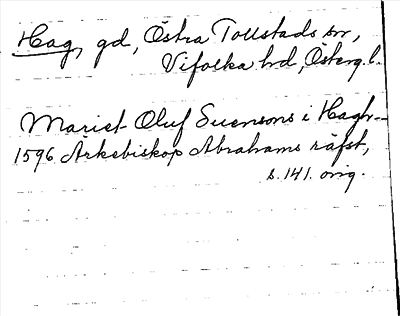 Hag, gd, Östra Tollstads sn,
Vifolka hd, Österg. l.
Mariet Oluf Suensons i Hagh
1596 Arkebiskop Abrahams räfst,
s. 141. orig.